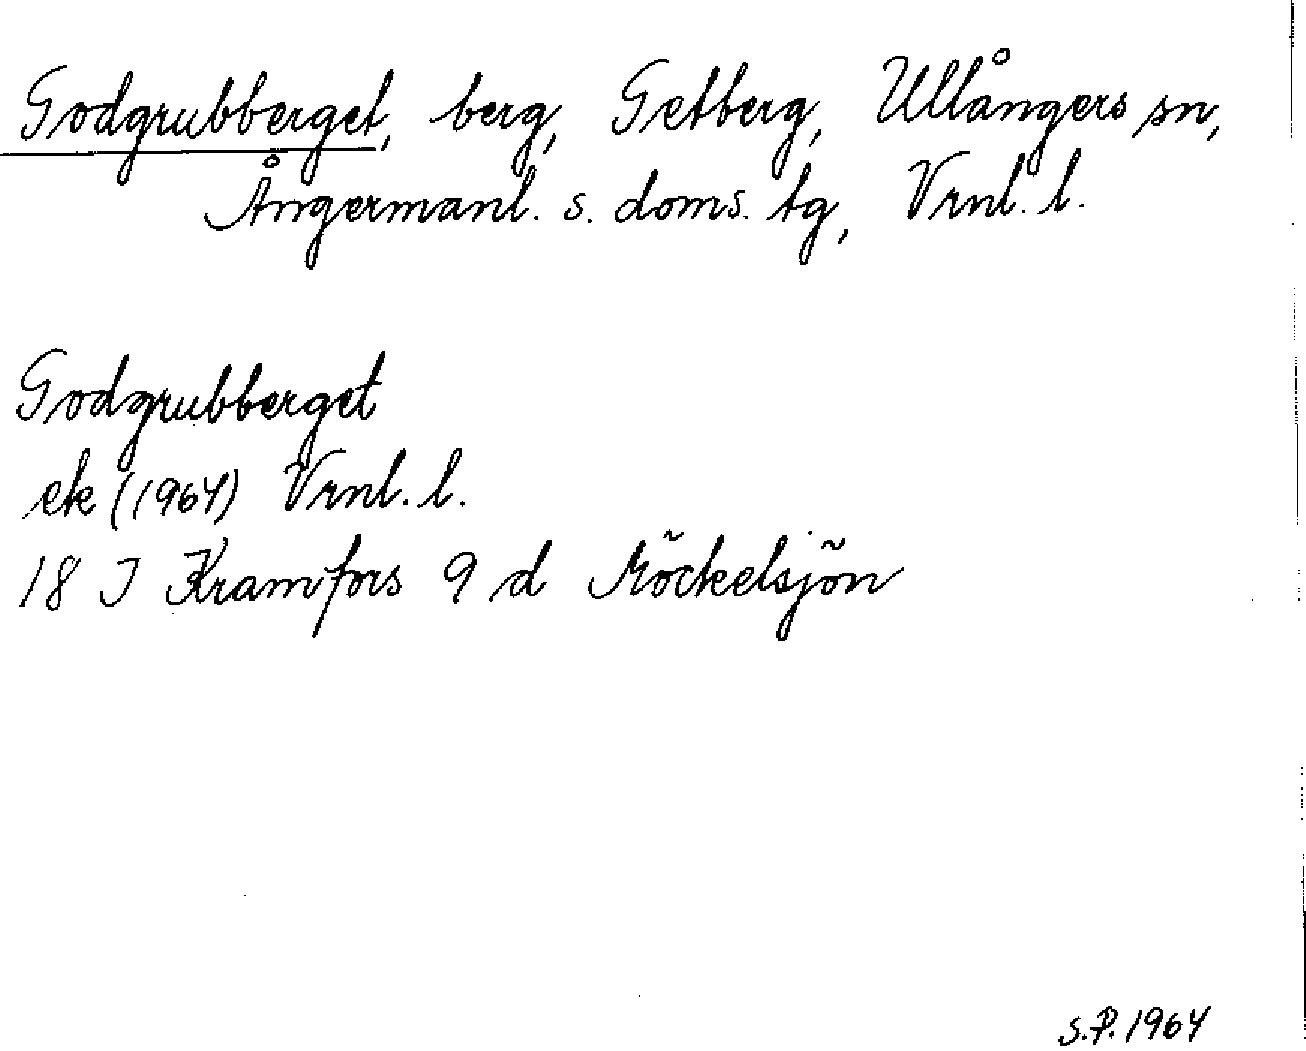 Godgrubberget, berg, Getberg, Ullångers sn,
Ångermanl. s. doms. tg, Vrnl. l.
Godgrubberget
ek (1964) Vrnl. l.
18 I Kramfors 9 d Möckelsjön
S.P. 1964